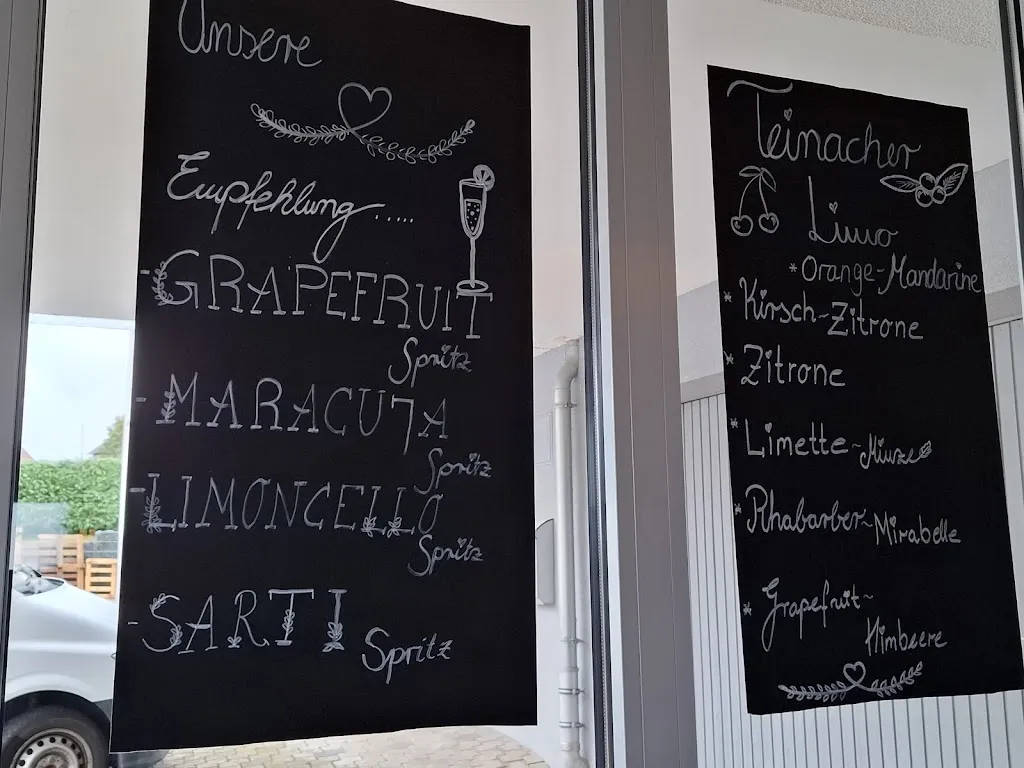 Unsere
Empfehlung.....
- GRAPEFRUIT
Spritz
- MARACUJA
Spritz
- LIMONCELLO
Spritz
- SARTI Spritz
Teinacher
Limo
* Orange-Mandarine
* Kirsch-Zitrone
* Zitrone
* Limette-Minze
* Rhabarber-Mirabelle
* Grapefruit-
Himbeere